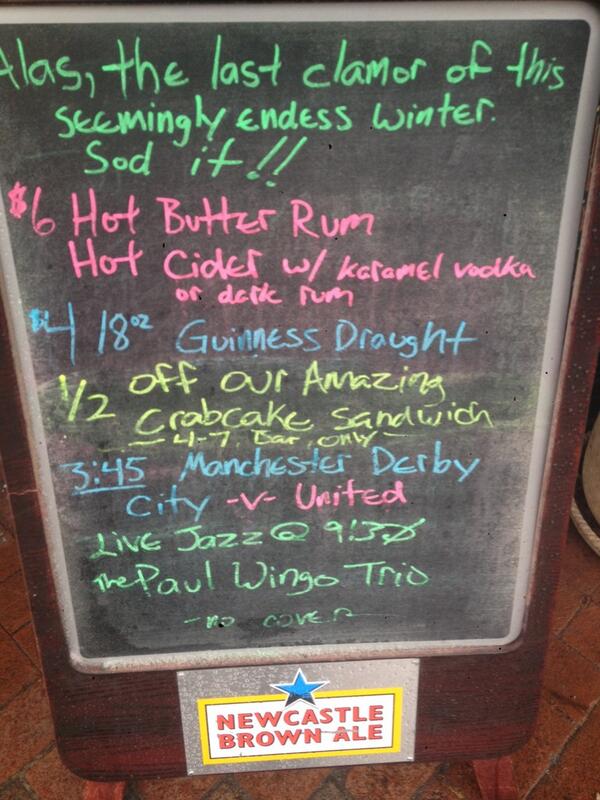 Alas, the last clamor of this
seemingly endess winter.
Sod it!!
$6 Hot Butter Rum
Hot Cider w/ karamel vodka
or dark rum
$4 18oz Guinness Draught
1/2 off our Amazing
Crabcake Sandwich
4-7 Bar, only -
3:45 Manchester Derby
City -v- United
Live Jazz @ 9:30
The Paul Wingo Trio
- no cover -
NEWCASTLE
BROWN ALE